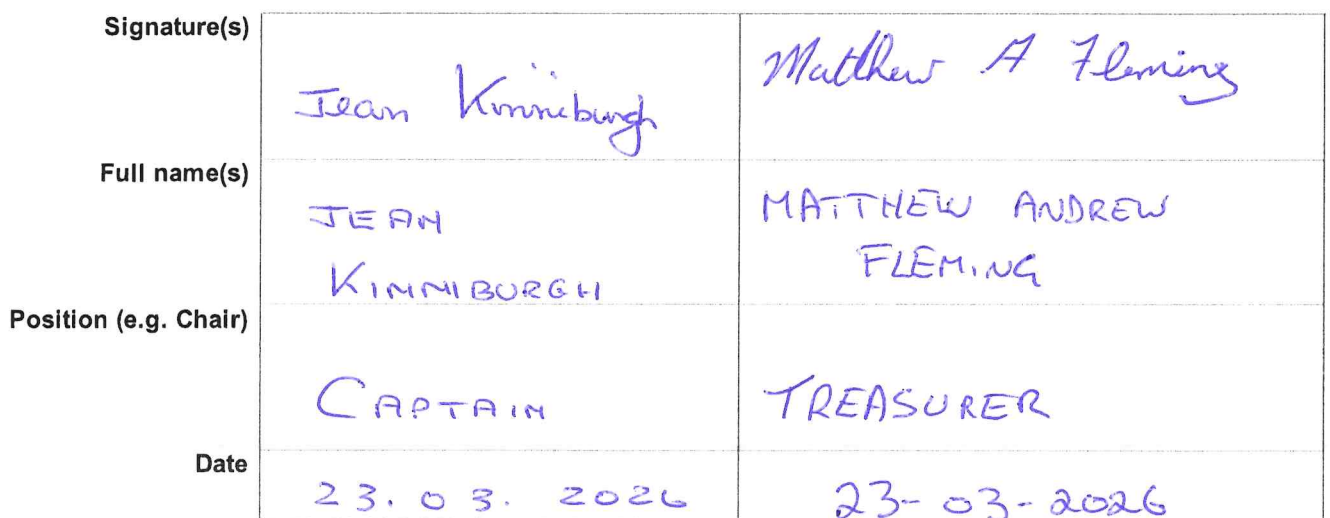 Signature(s)
Jean Kinniburgh
Matthew A Fleming
Full name(s)
JEAN
KINNIBURGH
MATTHEW ANDREW
FLEMING
Position (e.g. Chair)
CAPTAIN
TREASURER
Date
23.03.2026
23-03-2026